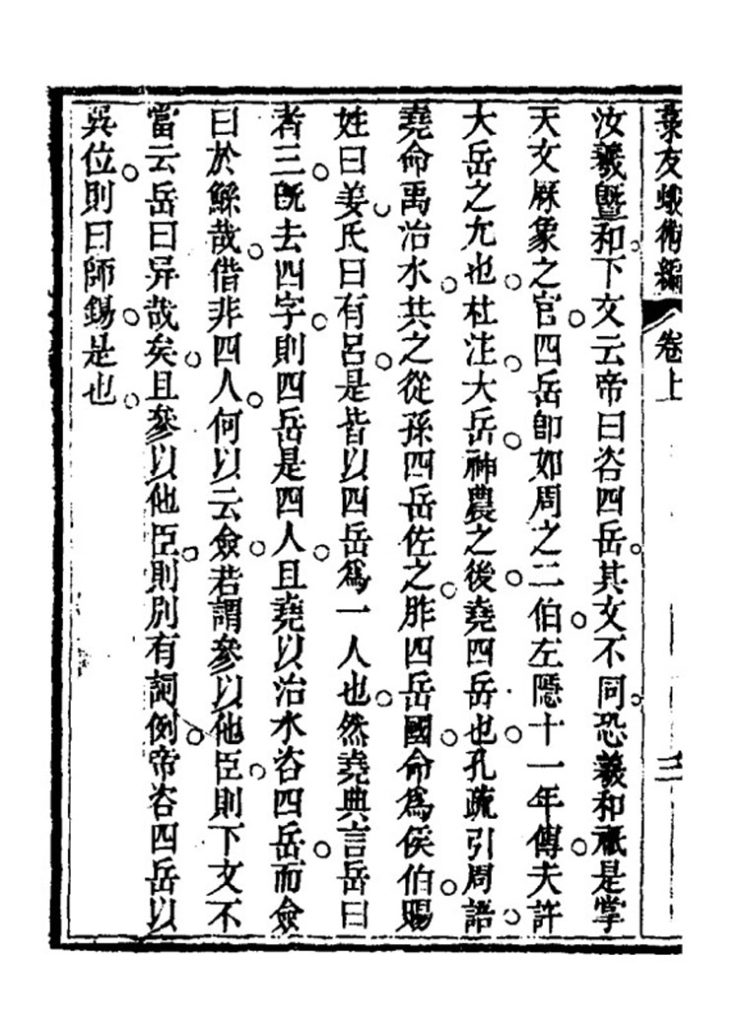 菉友蛾術編 卷上 三
汝羲暨和下文云帝曰咨四岳其文不同恐羲和祇是掌
天文厤象之官四岳卽如周之二伯左隱十一年傳夫許
大岳之允也杜注大岳神農之後堯四岳也孔疏引周語
堯命禹治水共之從孫四岳佐之胙四岳國命爲侯伯賜
姓曰姜氏曰有呂是皆以四岳爲一人也然堯典言岳曰
者三旣去四字則四岳是四人且堯以治水咨四岳而僉
曰於鯀哉借非四人何以云僉若謂參以他臣則下文不
當云岳曰异哉矣且參以他臣則別有詞例帝咨四岳以
巽位則曰師錫是也